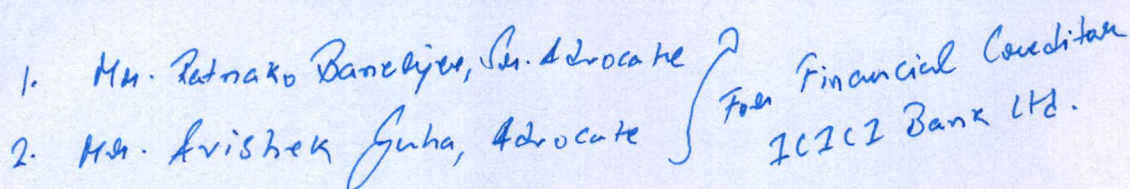 1. Mr. Ratnako Banerjee, Sr. Advocate
2. Mr. Avishek Guha, Advocate
For Financial Creditor
ICICI Bank Ltd.